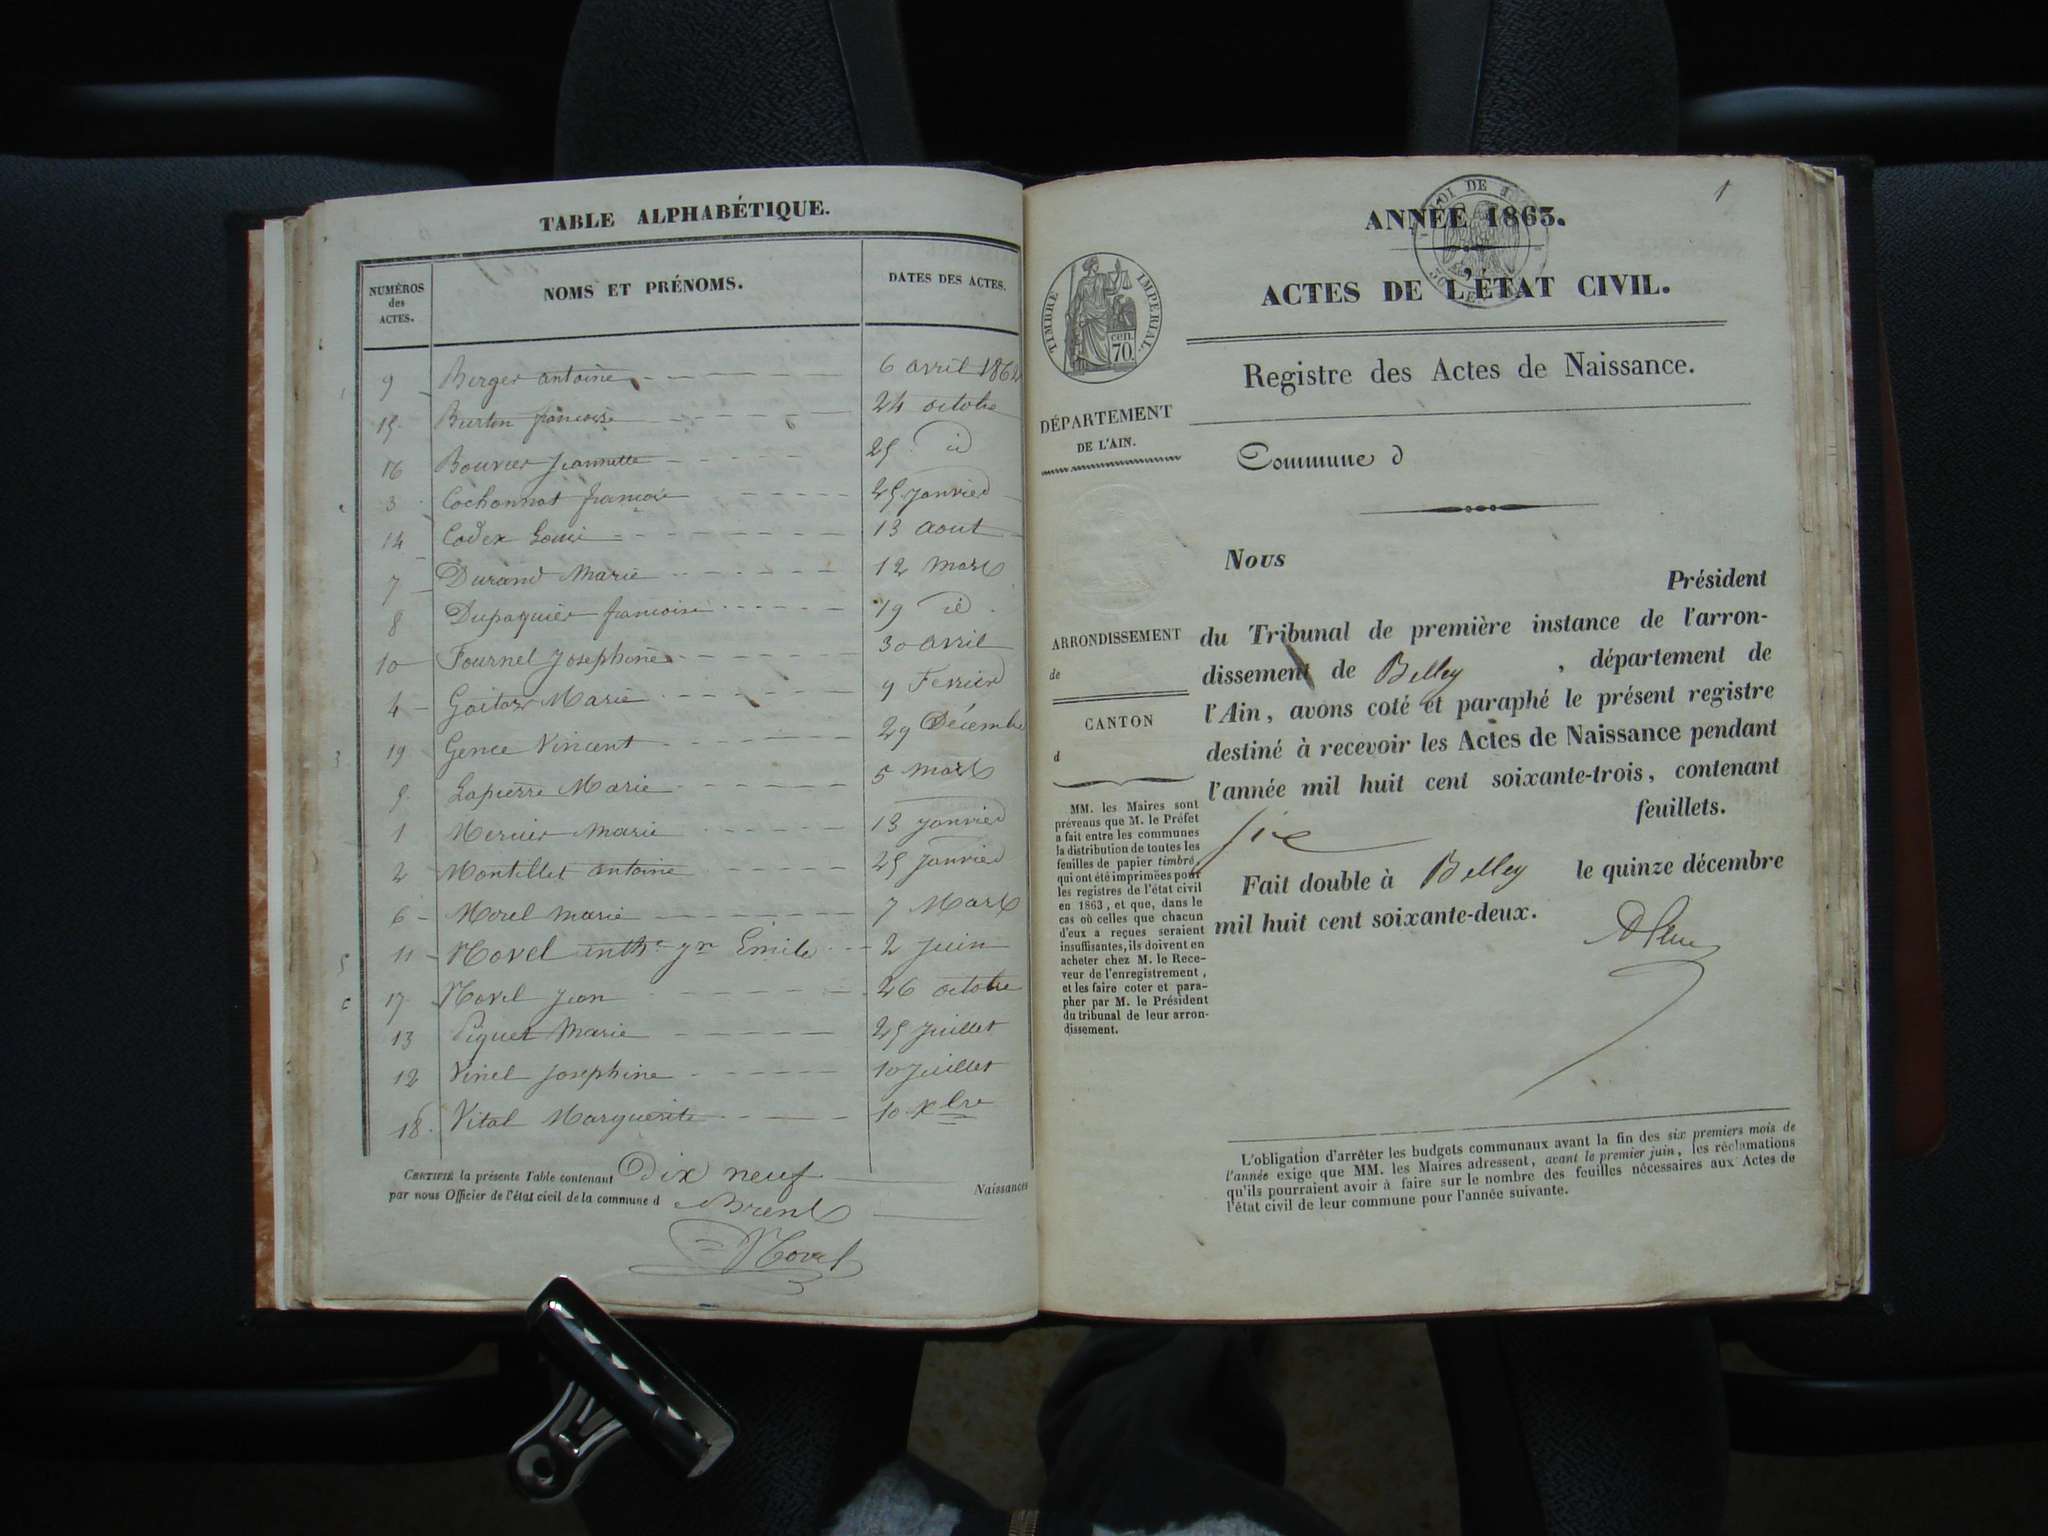 TABLE ALPHABÉTIQUE.
NUMÉROS des ACTES. NOMS ET PRÉNOMS. DATES DES ACTES.
9 Berger antoine 6 avril 1862
15 Burtin francoise 24 octobre
16 Bouvier Jeannette 25 id
3 Cochonnat francois 25 janvier
14 Codex Louis 13 aout
7 Durand Marie 12 Mars
8 Dupaquier francoise 19 id
10 Fournel Josephine 30 avril
4 Marie 9 Fevrier
19 Gence Vincent 29 Décembre
5 Lapierre Marie 5 Mars
1 Mercier Marie 13 janvier
2 Montillet antoine 25 Janvier
6 Morel marie 7 Mars
11 Novel Emile 2 Juin
17 Novel Jean 26 octobre
13 Piquet Marie 25 Juillet
12 Vinel Josephine 10 Juillet
18 Vital Marguerite 10 Xbre
CERTIFIÉ la présente Table contenant Dix neuf Naissances
par nous Officier de l'état civil de la commune d Brens
Novel
1
ANNÉE 1863.
ACTES DE L'ÉTAT CIVIL.
TIMBRE IMPÉRIAL.
cen. 70.
Registre des Actes de Naissance.
DÉPARTEMENT
DE L'AIN.
Commune d
ARRONDISSEMENT
de
CANTON
d
MM. les Maires sont
prévenus que M. le Préfet
a fait entre les communes
la distribution de toutes les
feuilles de papier timbré,
qui ont été imprimées pour
les registres de l'état civil
en 1863, et que, dans le
cas où celles que chacun
d'eux a reçues seraient
insuffisantes, ils doivent en
acheter chez M. le Rece-
veur de l'enregistrement,
et les faire coter et para-
pher par M. le Président
du tribunal de leur arron-
dissement.
Nous
Président
du Tribunal de première instance de l'arron-
dissement de Belley, département de
l'Ain, avons coté et paraphé le présent registre
destiné à recevoir les Actes de Naissance pendant
l'année mil huit cent soixante-trois, contenant
six feuillets.
Fait double à Belley le quinze décembre
mil huit cent soixante-deux.
L'obligation d'arrêter les budgets communaux avant la fin des six premiers mois de
l'année exige que MM. les Maires adressent, avant le premier juin, les réclamations
qu'ils pourraient avoir à faire sur le nombre des feuilles nécessaires aux Actes de
l'état civil de leur commune pour l'année suivante.